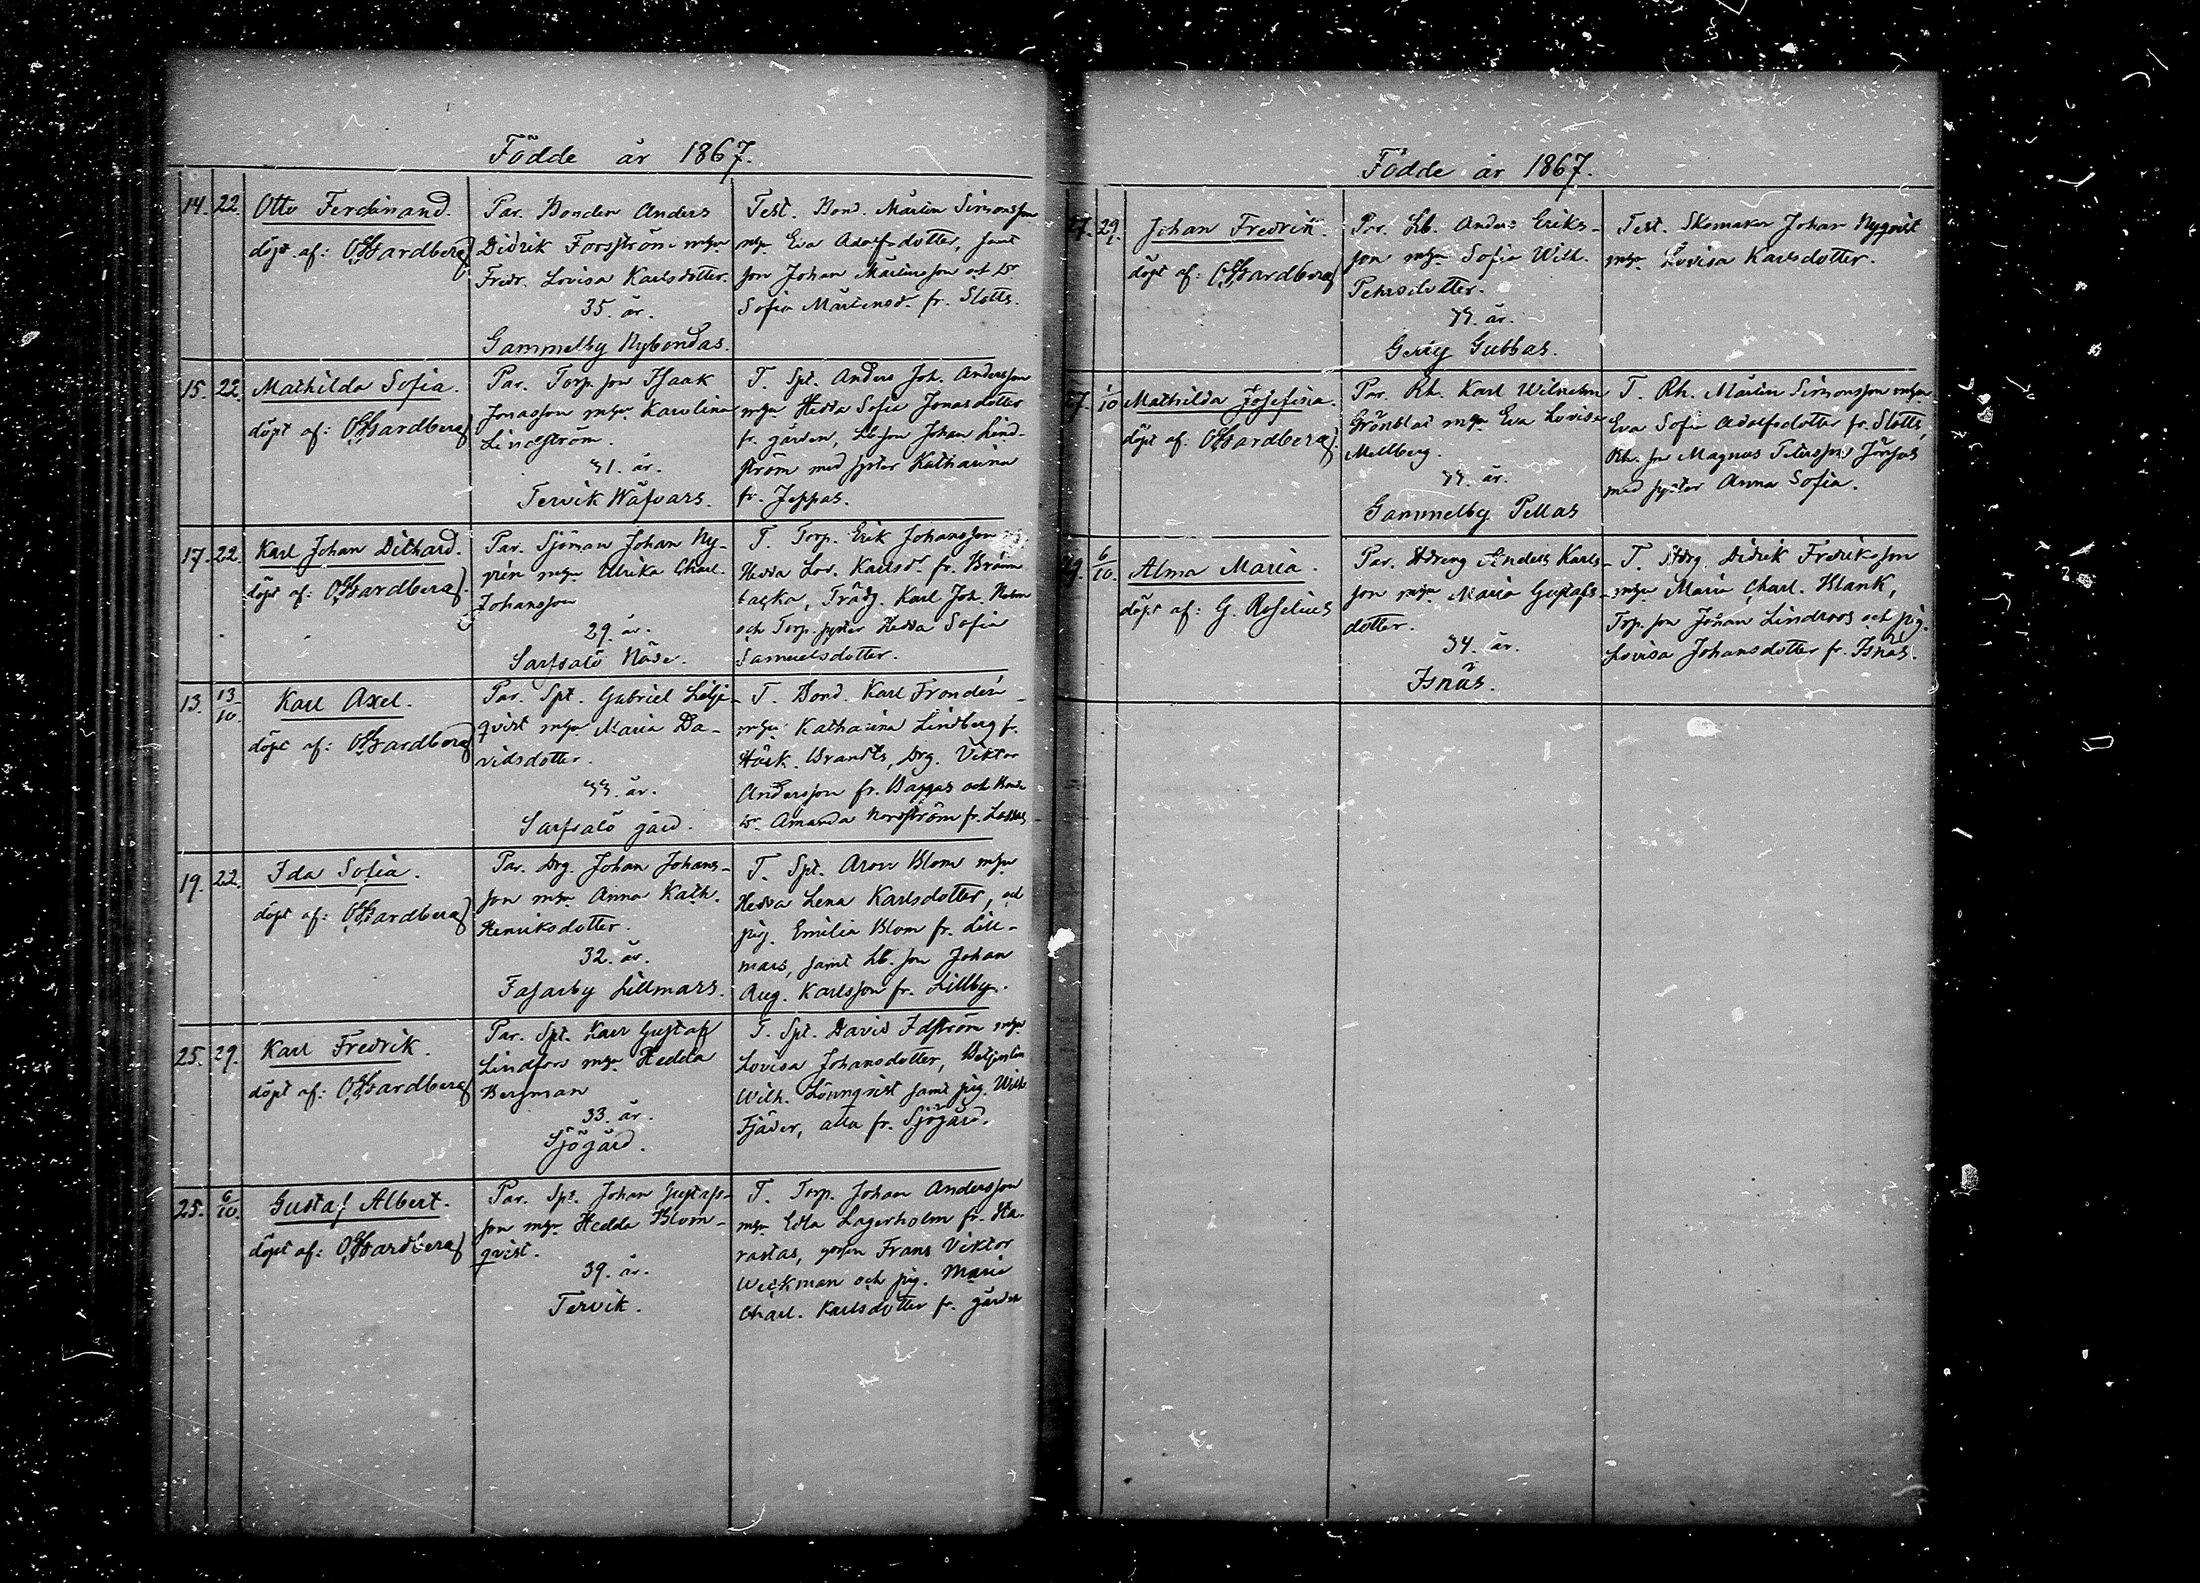 Födde år 1867.
14. 22. Otto Ferdinand.
döpt af: OHardberg
Par. Bonden Anders
Didrik Forsström mhu
Fredr. Lovisa Karlsdotter.
35. år.
Gammelby Nybondas.
Test. Bond. Mårten Simonsson
mhu Eva Adolfsdotter, samt
son Johan Mårtensson och dr
Sofia Mårtensd. fr. Slotts.
15. 22. Mathilda Sofia.
döpt af: OHardberg
Par. Torp. son Isaak
Jonasson mhu Karolina
Lindström.
31. år.
Tervik Wäfvars.
T. Spt. Anders Joh. Andersson
mhu Hedda Sofia Jonasdotter
fr. gården, Lb. son Johan Lind-
ström med syster Katharina
fr. Jeppas.
17. 22. Karl Johan Dithard.
döpt af: OHardberg.
Par. Sjöman Johan Ny-
rén mhu Ulrika Charl.
Johansson
29. år.
Sarfsalö Näse.
T. Torp. Erik Johansson
Hedda Lov. Karlsd. fr.
backa, Trädg. Karl Joh.
och Torp. syster Hedda Sofia
Samuelsdotter.
13. 13/10. Karl Axel.
döpt af: OHardberg
Par. Spt. Gabriel Lilje-
qvist mhu Maria Da-
vidsdotter.
33. år.
Sarfsalö gård.
T. Bond. Karl Frondén
mhu Katharina Lindberg fr.
Hårk. Brandts, Drg. Viktor
Andersson fr. Baggas och Bond
dr. Amanda Nordström fr. Lassas
19. 22. Ida Sofia.
döpt af: OHardberg
Par. Drg. Johan Johans-
son mhu Anna Kath.
Henriksdotter.
32. år.
Fasarby Lillmars.
T. Spt. Aron Blom mhu
Hedda Lena Karlsdotter, och
pig. Emilia Blom fr. Lill-
mars, samt Lb. son Johan
Aug. Karlsson fr. Lillby.
25. 29. Karl Fredrik.
döpt af: OHardberg
Par. Spt. Karl Gustaf
Lindfors mhu Hedda
Bergman
33. år.
Sjögård.
T. Spt. David Idström mhu
Lovisa Johansdotter, Betjenten
Wilh. Lönnqvist samt pig. Wilh
Fjäder, alla fr. Sjögård.
25. 6/10. Gustaf Albert.
döpt af: OHardberg
Par. Spt. Johan Gustafs-
son mhu Hedda Blom-
qvist.
39. år.
Tervik.
T. Torp. Johan Andersson
mhu Edla Lagerholm fr. Ha-
rastas, gossen Frans Viktor
Weckman och pig. Maria
Charl. Karlsdotter fr. gården
Födde år 1867.
27. 29. Johan Fredrik.
döpt af: OHardberg
Par. Lb. Anders Eriks-
son mhu Sofia Wilh.
Pehrsdotter.
33. år.
Gerby Gubbas.
Test. Skomakar Johan Nyqvist
mhu Lovisa Karlsdotter.
27. 1/10 Mathilda Josefina.
döpt af: OHardberg.
Par. Rh. Karl Wilhelm
Grönblad mhu Eva Lovisa
Mellberg.
33. år.
Gammelby Pellas
T. Rh. Mårten Simonsson mhu
Eva Sofia Adolfsdotter fr. Slotts,
Rh. son Magnus Petersson Jörsas
med syster Anna Sofia.
29. 6/10. Alma Maria.
döpt af: G. Roselius
Par. Hdreng Anders Karls-
son mhu Maria Gustafs-
dotter.
34. år.
Isnäs.
T. Hdrg. Didrik Fredriksson
mhu Maria Charl. Blank,
Torp. son Johan Lindroos och pig.
Lovisa Johansdotter fr. Isnäs.